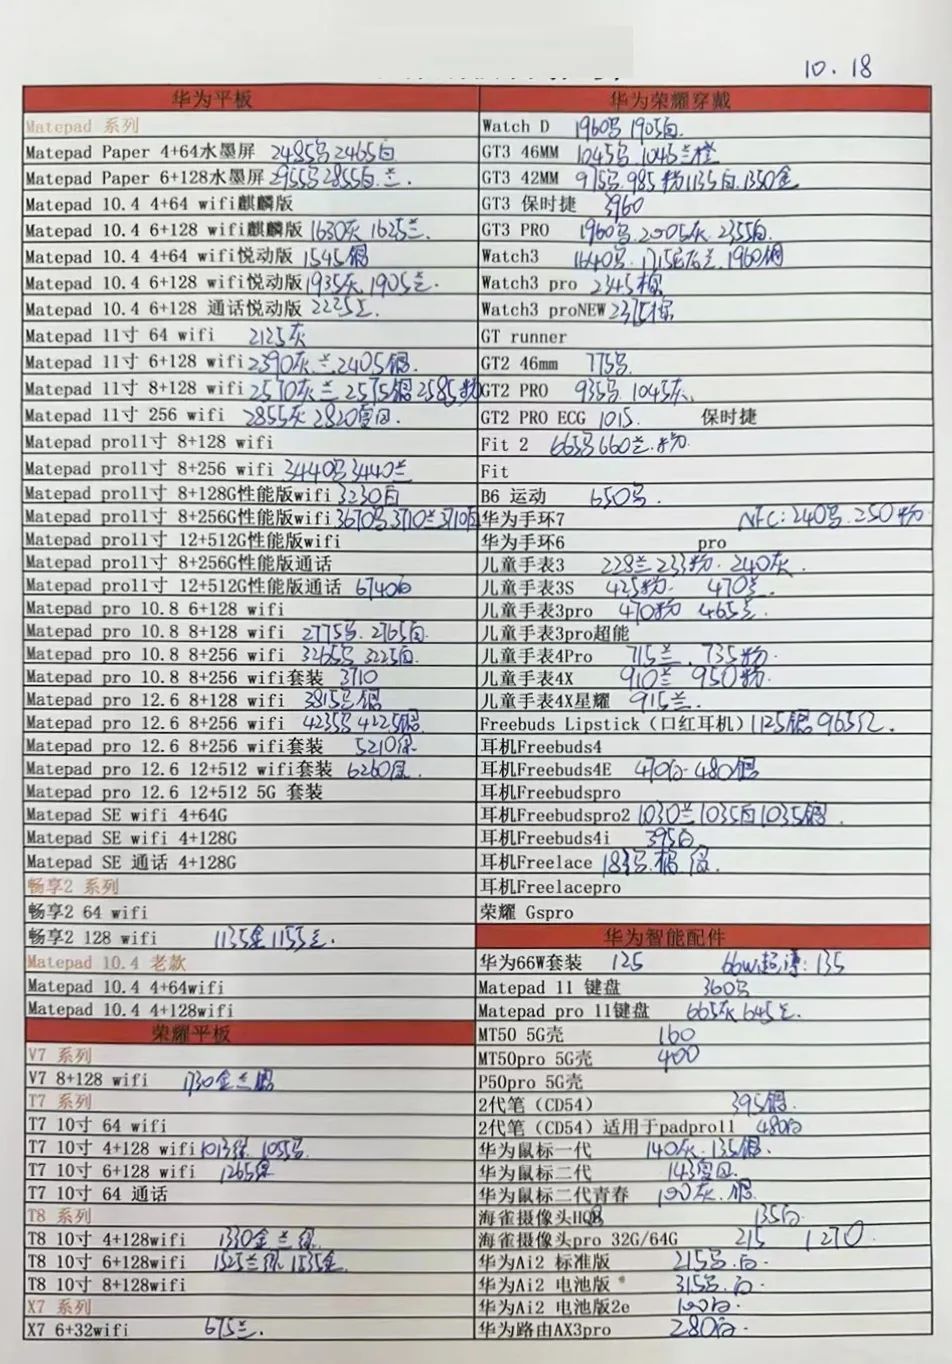 10.18
华为平板
Matepad 系列
Matepad Paper 4+64水墨屏 2485 2465白
Matepad Paper 6+128水墨屏 2955 2855白.兰.
Matepad 10.4 4+64 wifi麒麟版
Matepad 10.4 6+128 wifi麒麟版 1630灰 1625兰.
Matepad 10.4 4+64 wifi悦动版 1545
Matepad 10.4 6+128 wifi悦动版 1935灰.1905兰.
Matepad 10.4 6+128 通话悦动版
Matepad 11寸 64 wifi 2125灰
Matepad 11寸 6+128 wifi 2390灰 兰.2405
Matepad 11寸 8+128 wifi 2570灰 兰 2575 2585粉
Matepad 11寸 256 wifi 2855灰 2820
Matepad pro11寸 8+128 wifi
Matepad pro11寸 8+256 wifi 3440 3440兰
Matepad pro11寸 8+128G性能版wifi 3230白
Matepad pro11寸 8+256G性能版wifi 3670 3710兰 3710白
Matepad pro11寸 12+512G性能版wifi
Matepad pro11寸 8+256G性能版通话
Matepad pro11寸 12+512G性能版通话 6740白
Matepad pro 10.8 6+128 wifi
Matepad pro 10.8 8+128 wifi 2775 2765白.
Matepad pro 10.8 8+256 wifi 3265 3225白.
Matepad pro 10.8 8+256 wifi套装 3710
Matepad pro 12.6 8+128 wifi 3815
Matepad pro 12.6 8+256 wifi 4235 4225
Matepad pro 12.6 8+256 wifi套装 5210
Matepad pro 12.6 12+512 wifi套装 6260
Matepad pro 12.6 12+512 5G 套装
Matepad SE wifi 4+64G
Matepad SE wifi 4+128G
Matepad SE 通话 4+128G
畅享2 系列
畅享2 64 wifi
畅享2 128 wifi 1135金 1155兰.
Matepad 10.4 老款
Matepad 10.4 4+64wifi
Matepad 10.4 4+128wifi
荣耀平板
V7 系列
V7 8+128 wifi 1730金兰
T7 系列
T7 10寸 64 wifi
T7 10寸 4+128 wifi 1055
T7 10寸 6+128 wifi 1265
T7 10寸 64 通话
T8 系列
T8 10寸 4+128wifi 1330金 兰
T8 10寸 6+128wifi 1525兰 1535金.
T8 10寸 8+128wifi
X7 系列
X7 6+32wifi 675兰.
华为荣耀穿戴
Watch D 1960 1905白.
GT3 46MM 1045 1045兰
GT3 42MM 975 985粉 1135白.1350金
GT3 保时捷 3960
GT3 PRO 1960 2005灰. 2355白.
Watch3 1640 1960
Watch3 pro 2345棕
Watch3 proNEW 2375棕
GT runner
GT2 46mm 775
GT2 PRO 935 1045灰.
GT2 PRO ECG 1015. 保时捷
Fit 2 665 660兰.粉.
Fit
B6 运动 650
华为手环7 NFC:240 250粉
华为手环6 pro
儿童手表3 228兰 233粉. 240灰.
儿童手表3S 425粉. 470兰.
儿童手表3pro 470粉 465兰.
儿童手表3pro超能
儿童手表4Pro 715兰. 735粉.
儿童手表4X 910兰 950粉.
儿童手表4X星耀 915兰.
Freebuds Lipstick（口红耳机） 1125 965
耳机Freebuds4
耳机Freebuds4E 470白-480
耳机Freebudspro
耳机Freebudspro2 1030兰 1035白 1035
耳机Freebuds4i 395白
耳机Freelace
耳机Freelacepro
荣耀 Gspro
华为智能配件
华为66W套装 125 66w超薄:135
Matepad 11 键盘 360
Matepad pro 11键盘 665灰 645兰.
MT50 5G壳 160
MT50pro 5G壳 400
P50pro 5G壳
2代笔（CD54） 395
2代笔（CD54）适用于padpro11 480白
华为鼠标一代 140灰.135
华为鼠标二代 143
华为鼠标二代青春 100灰.
海雀摄像头HQ8 135白.
海雀摄像头pro 32G/64G 215 1270
华为Ai2 标准版 215 .白.
华为Ai2 电池版 315 .白.
华为Ai2 电池版2e 100白.
华为路由AX3pro 280白.